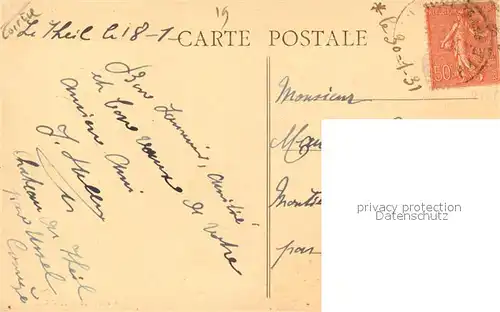 Corrèze
19
Le Theil le 18-1-
CARTE POSTALE
* le 30-1-31
50
Bon Souvenir, amitié,
et bons vœux de votre
ancien ami
J.
Château du Theil
par Ussel
Corrèze
Monsieur
par
privacy protection
Datenschutz